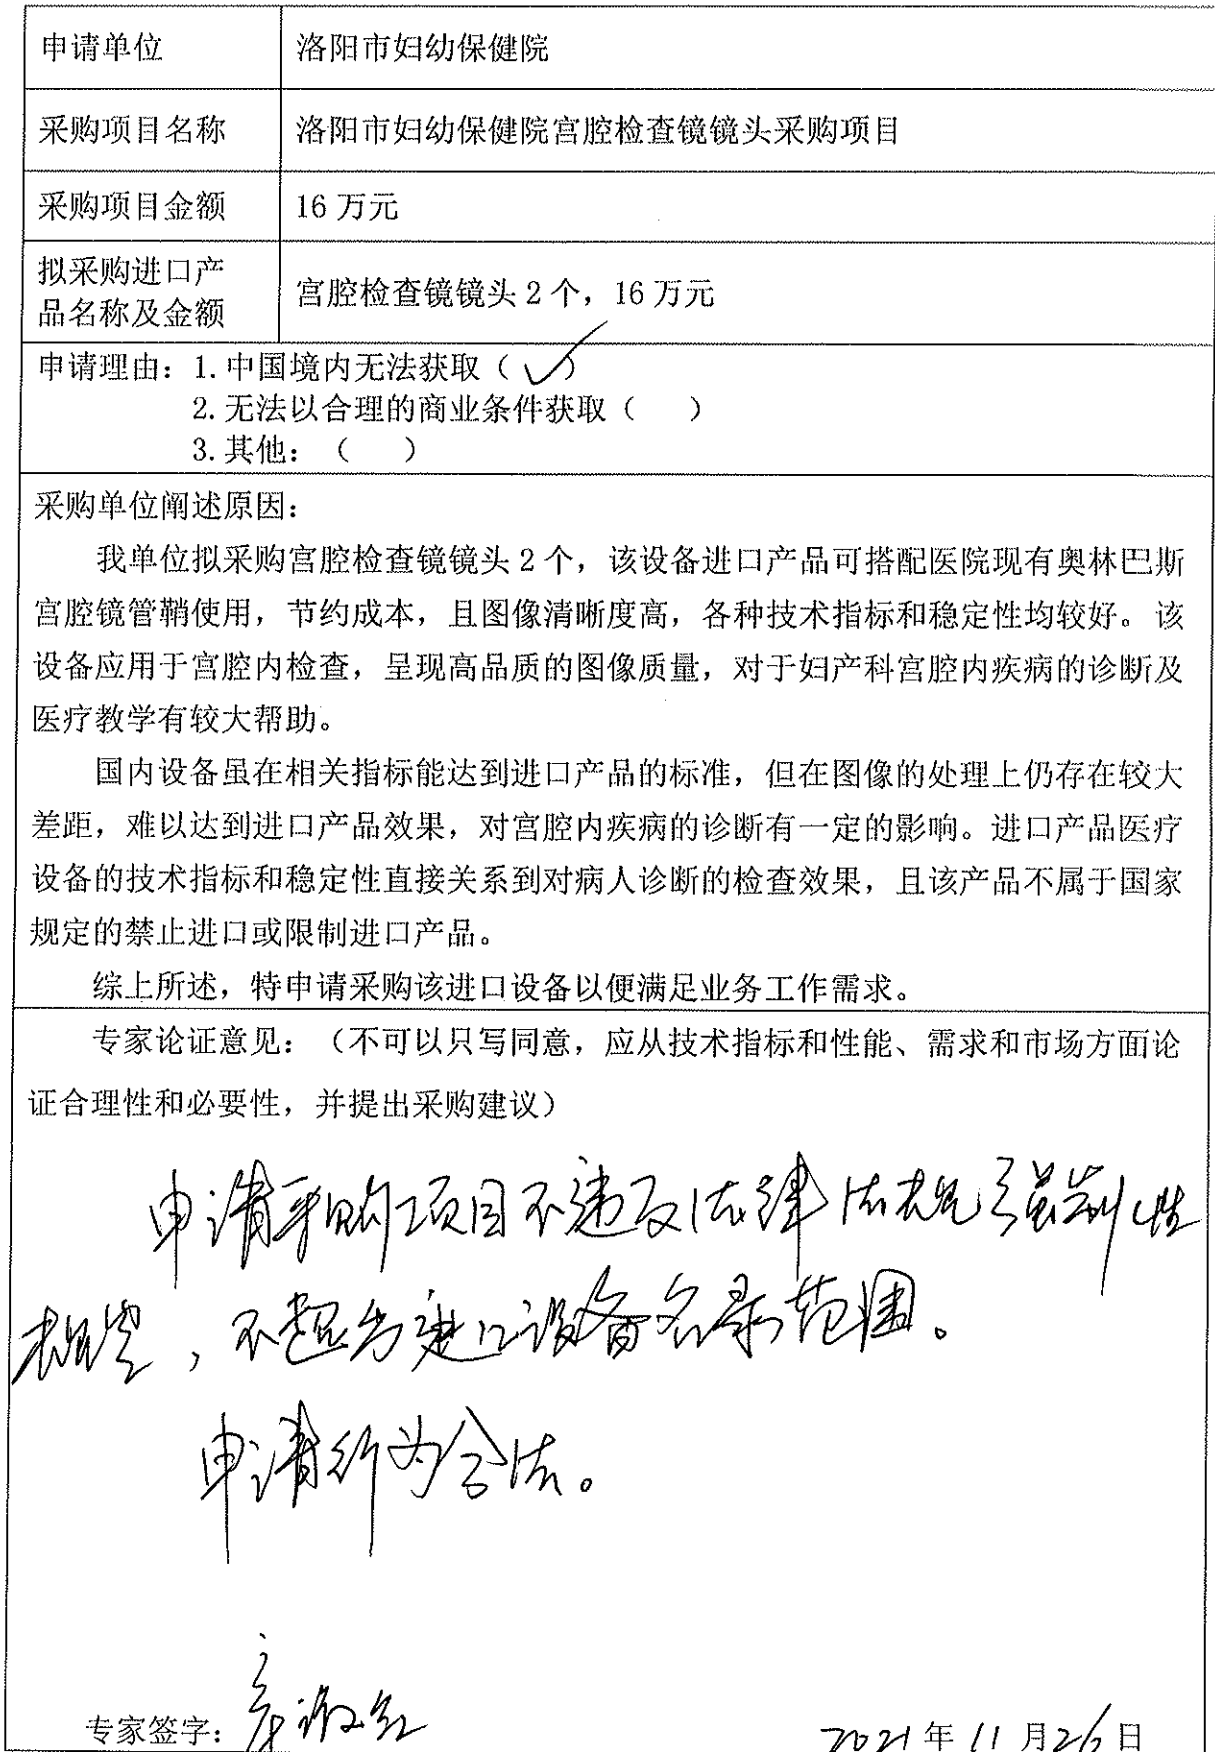 申请单位 洛阳市妇幼保健院
采购项目名称 洛阳市妇幼保健院宫腔检查镜镜头采购项目
采购项目金额 16 万元
拟采购进口产
品名称及金额 宫腔检查镜镜头 2 个，16 万元
申请理由：1. 中国境内无法获取（ ✓ ）
2. 无法以合理的商业条件获取（ ）
3. 其他：（ ）
采购单位阐述原因：
我单位拟采购宫腔检查镜镜头 2 个，该设备进口产品可搭配医院现有奥林巴斯
宫腔镜管鞘使用，节约成本，且图像清晰度高，各种技术指标和稳定性均较好。该
设备应用于宫腔内检查，呈现高品质的图像质量，对于妇产科宫腔内疾病的诊断及
医疗教学有较大帮助。
国内设备虽在相关指标能达到进口产品的标准，但在图像的处理上仍存在较大
差距，难以达到进口产品效果，对宫腔内疾病的诊断有一定的影响。进口产品医疗
设备的技术指标和稳定性直接关系到对病人诊断的检查效果，且该产品不属于国家
规定的禁止进口或限制进口产品。
综上所述，特申请采购该进口设备以便满足业务工作需求。
专家论证意见：（不可以只写同意，应从技术指标和性能、需求和市场方面论
证合理性和必要性，并提出采购建议）
申请采购项目不违反法律法规强制性
规定，不超出进口设备名录范围。
申请行为合法。
专家签字：
2021 年 11 月 26 日